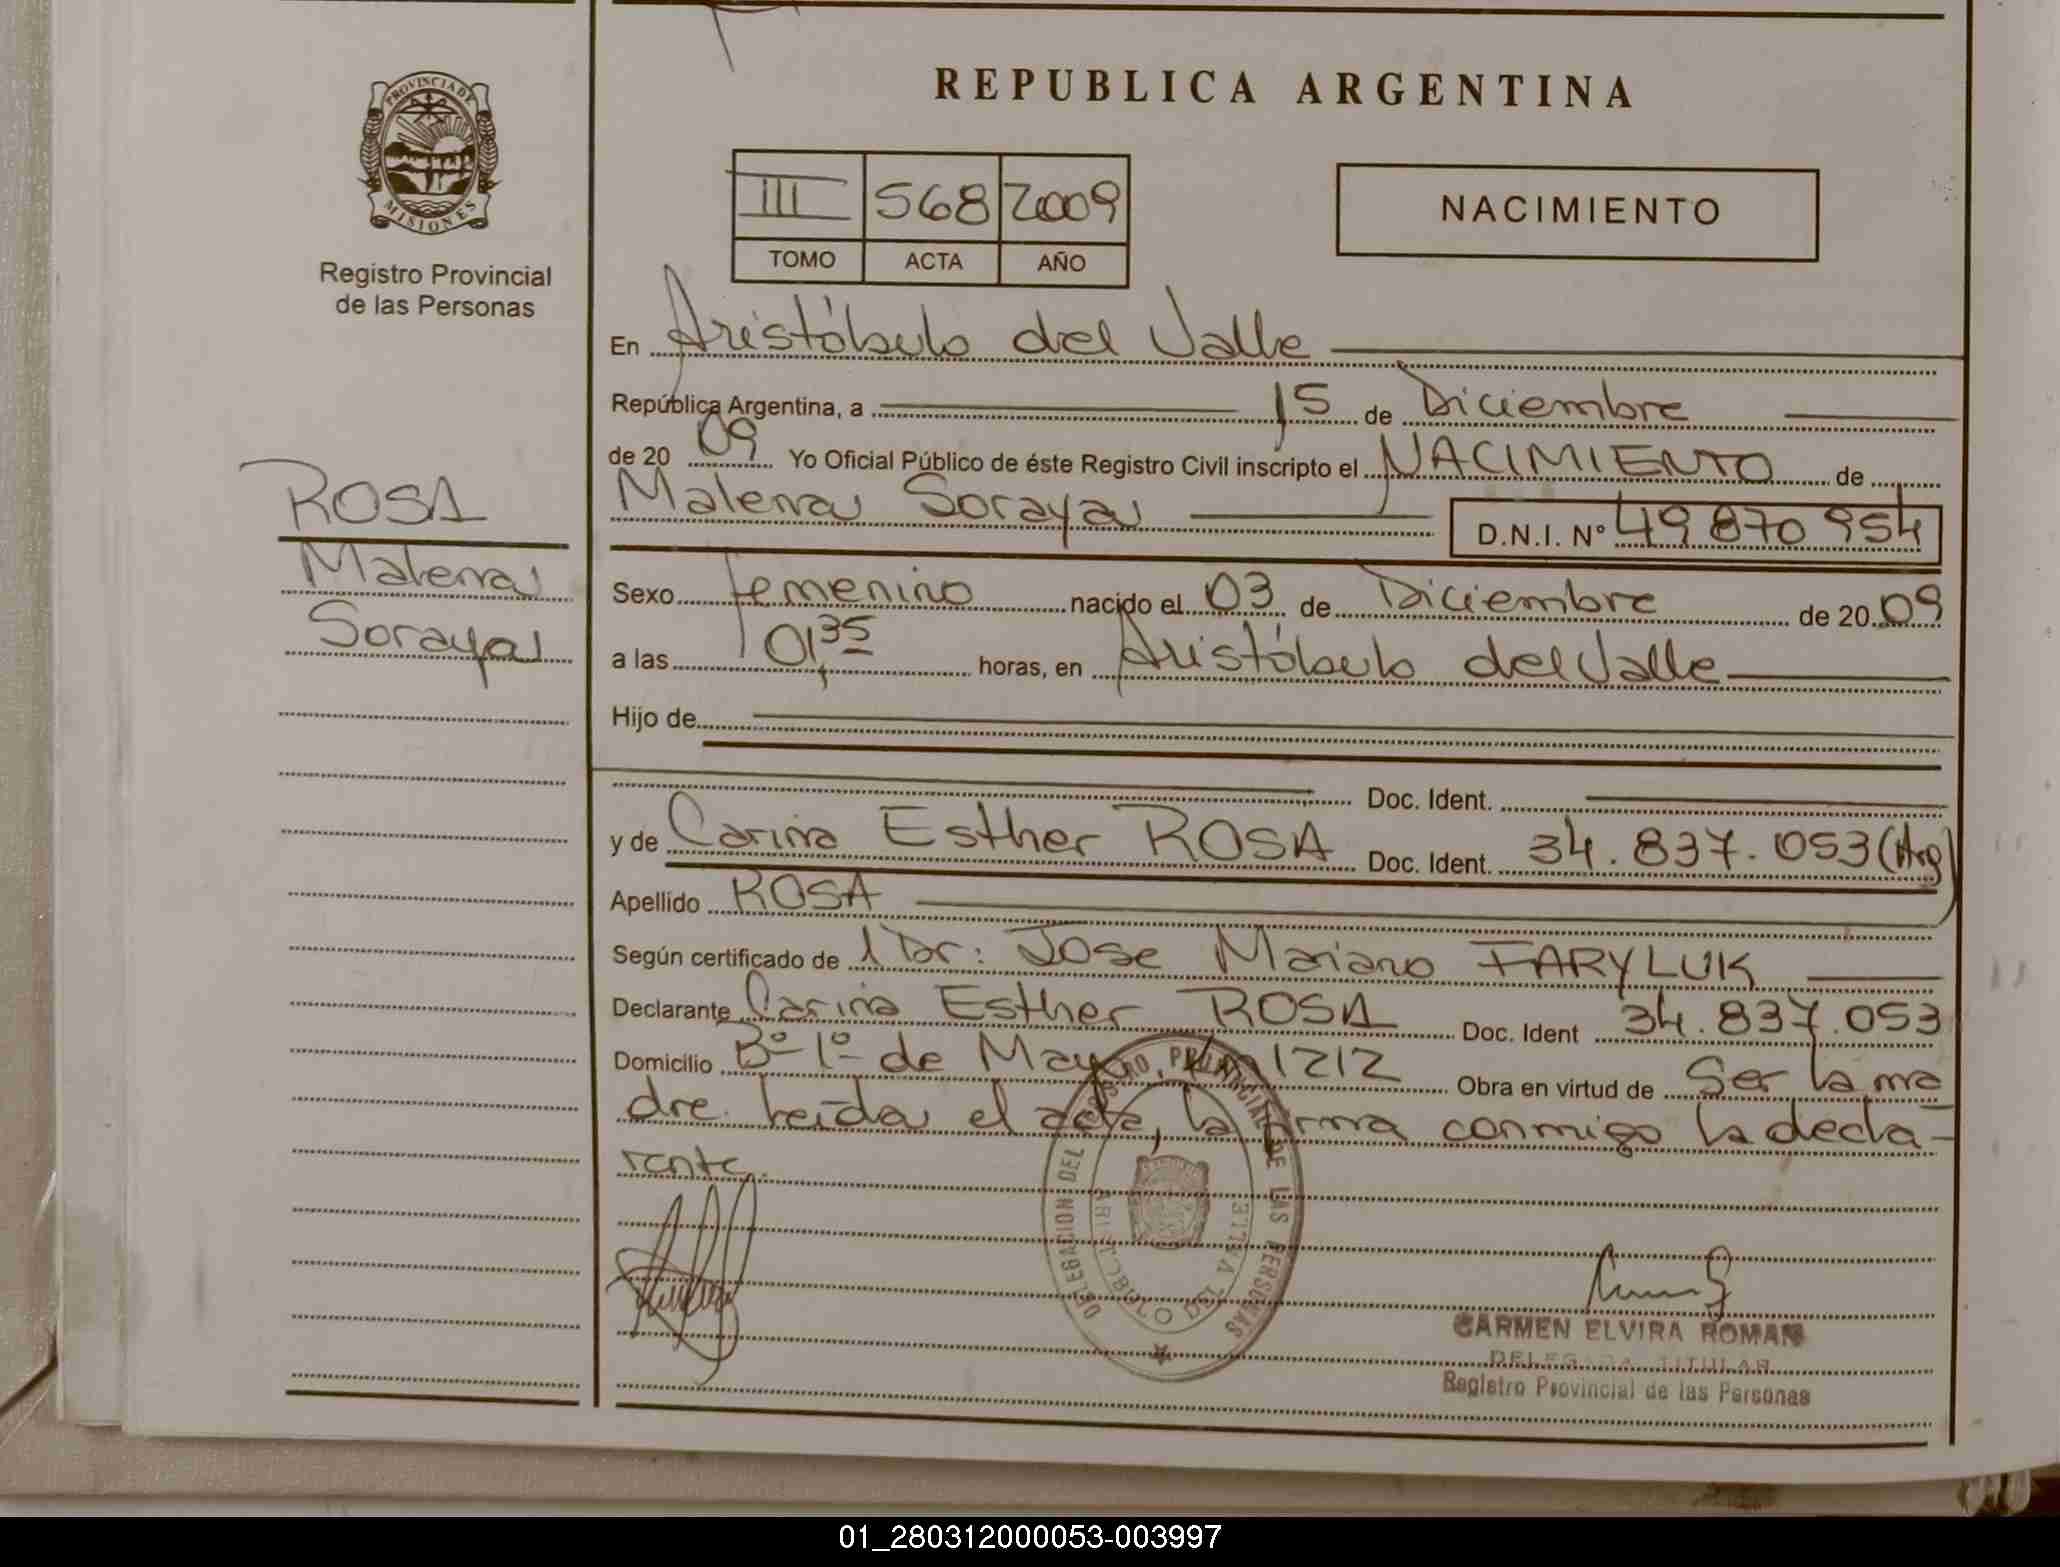 PROVINCIA DE
MISIONES
Registro Provincial
de las Personas
ROSA
Malena
Soraya
REPUBLICA ARGENTINA
III 568 2009
TOMO ACTA AÑO
NACIMIENTO
En Aristóbulo del Valle
República Argentina, a 15 de Diciembre
de 20 09 Yo Oficial Público de éste Registro Civil inscripto el NACIMIENTO de
Malena Soraya D.N.I. Nº 49 870 954
Sexo femenino nacido el 03 de Diciembre de 20 09
a las 01,35 horas, en Aristóbulo del Valle
Hijo de
Doc. Ident.
y de Carina Esther ROSA Doc. Ident. 34.837.053 (Arg)
Apellido ROSA
Según certificado de l Dr: Jose Mariano FARYLUK
Declarante Carina Esther ROSA Doc. Ident 34.837.053
Domicilio Bº 1º de Mayo Km 1212 Obra en virtud de Ser la ma
dre. Leída el acta, la firma conmigo la decla-
rante.
DELEGACION DEL REGISTRO PROVINCIAL DE LAS PERSONAS
ARISTOBULO DEL VALLE
CARMEN ELVIRA ROMAN
DELEGADA TITULAR
Registro Provincial de las Personas
01_280312000053-003997